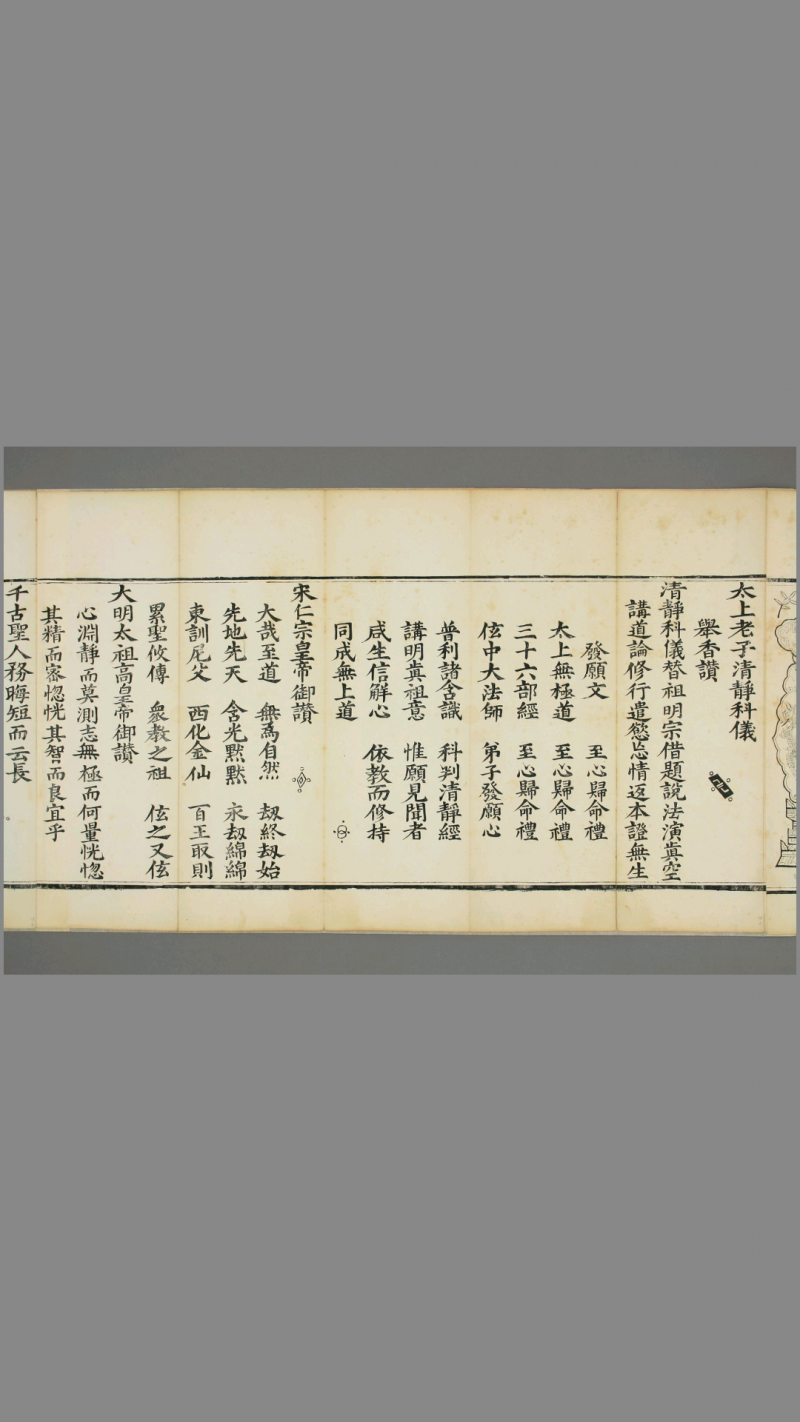 太上老子清靜科儀
舉香讚
清靜科儀替祖明宗借題說法演眞空
講道論修行遣慾忘情返本證無生
發願文 至心歸命禮
太上無極道 至心歸命禮
三十六部經 至心歸命禮
伭中大法師 第子發願心
普利諸含識 科判清靜經
講明眞祖意 惟願見聞者
咸生信解心 依教而修持
同成無上道
宋仁宗皇帝御讚
大哉至道 無爲自然 刼終刼始
先地先天 含光黙黙 永刼綿綿
東訓尼父 西化金仙 百王取則
累聖攸傳 衆教之祖 伭之又伭
大明太祖高皇帝御讚
心淵靜而莫測志無極而何量恍惚
其精而密惚恍其智而良宜乎
千古聖人務晦短而云長